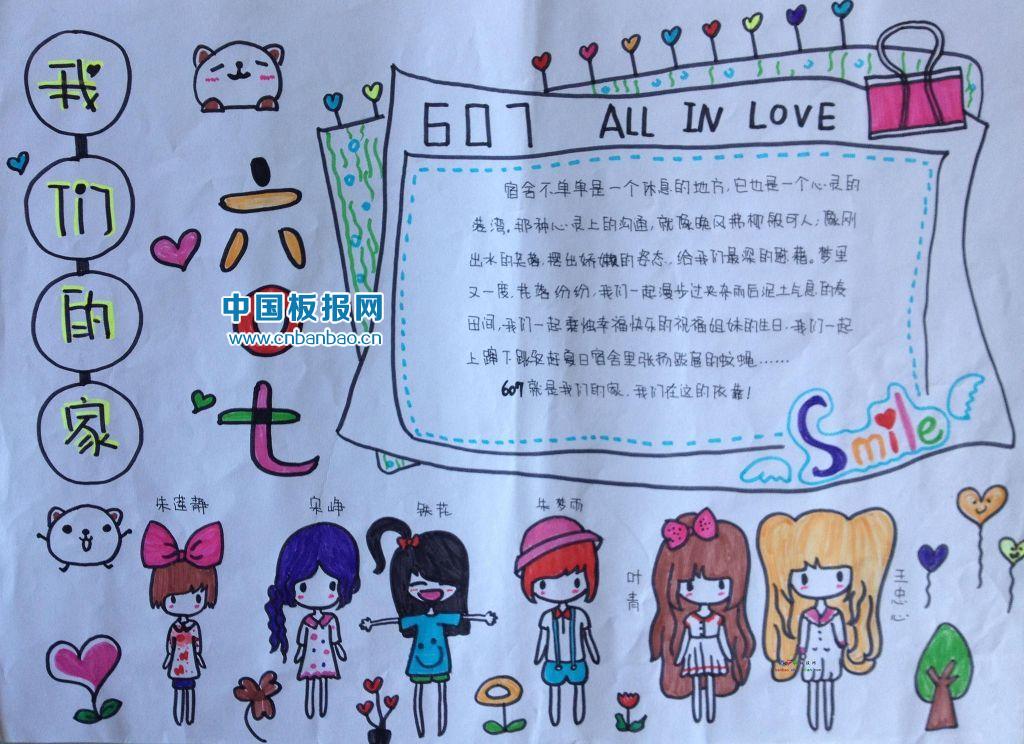 我们的家
六〇七
607 ALL IN LOVE
宿舍不单单是一个休息的地方,它也是一个心灵的
港湾。那种心灵上的沟通,就像晚风拂柳般可人;像刚
出水的芙蓉,摆出娇嫩的姿态,给我们最深的慰藉。梦里
又一度,花落纷纷,我们一起漫步过来雨后泥土气息的
田间,我们一起秉烛幸福快乐的祝福姐妹的生日,我们一起
上蹿下跳驱赶夏日宿舍里张扬跋扈的蚊蝇……
607就是我们的家,我们在这的依靠!
Smile
中国板报网
www.cnbanbao.cn
朱莲静
铁花
朱梦雨
叶青
王忠心